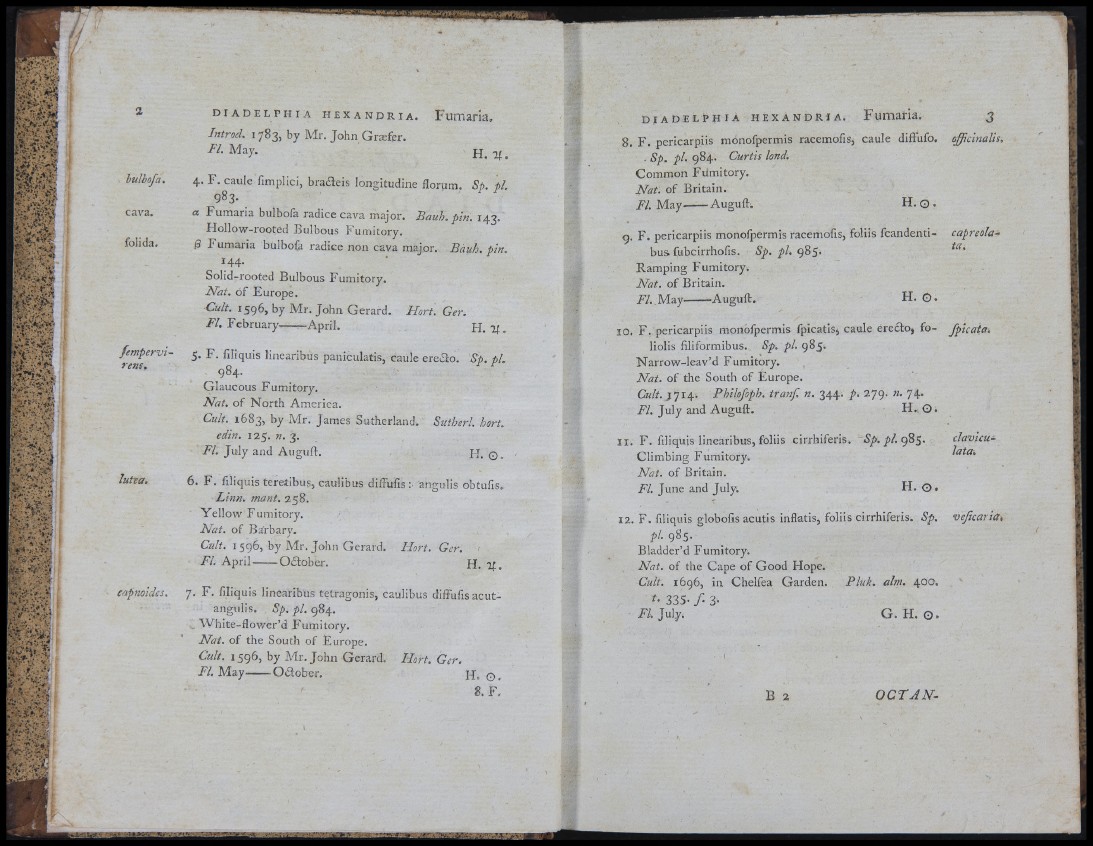 2 DIADELPHIA HEXANDRIA. Fumaria.
Introd. 1783, by Mr. John Græfer.
Fl. May. H. ♃.
bulboſa. 4. F. caule ſimplici, bracteis longitudine florum. Sp. pl.
983.
cava. α Fumaria bulboſa radice cava major. Bauh. pin. 143.
Hollow-rooted Bulbous Fumitory.
ſolida. β Fumaria bulboſa radice non cava major. Bauh. pin.
144.
Solid-rooted Bulbous Fumitory.
Nat. of Europe.
Cult. 1596, by Mr. John Gerard. Hort. Ger.
Fl. February——April. H. ♃.
ſempervi- 5. F. ſiliquis linearibus paniculatis, caule erecto. Sp. pl.
rens. 984.
Glaucous Fumitory.
Nat. of North America.
Cult. 1683, by Mr. James Sutherland. Sutherl. hort.
edin. 125. n. 3.
Fl. July and Auguſt. H. ☉.
lutea. 6. F. ſiliquis teretibus, caulibus diffuſis: angulis obtuſis.
Linn. mant. 258.
Yellow Fumitory.
Nat. of Barbary.
Cult. 1596, by Mr. John Gerard. Hort. Ger.
Fl. April——October. H. ♃.
capnoides. 7. F. ſiliquis linearibus tetragonis, caulibus diffuſis acut-
angulis. Sp. pl. 984.
White-flower'd Fumitory.
Nat. of the South of Europe.
Cult. 1596, by Mr. John Gerard. Hort. Ger.
Fl. May——October. H. ☉.
8. F.
DIADELPHIA HEXANDRIA. Fumaria. 3
8. F. pericarpiis monoſpermis racemoſis, caule diffuſo. officinalis.
Sp. pl. 984. Curtis lond.
Common Fumitory.
Nat. of Britain.
Fl. May——Auguſt. H. ☉.
9. F. pericarpiis monoſpermis racemoſis, foliis ſcandenti- capreola-
bus ſubcirrhoſis. Sp. pl. 985. ta.
Ramping Fumitory.
Nat. of Britain.
Fl. May——Auguſt. H. ☉.
10. F. pericarpiis monoſpermis ſpicatis, caule erecto, fo- ſpicata.
liolis filiformibus. Sp. pl. 985.
Narrow-leav'd Fumitory.
Nat. of the South of Europe.
Cult. 1714. Philoſoph. tranſ. n. 344. p. 279. n. 74.
Fl. July and Auguſt. H. ☉.
11. F. ſiliquis linearibus, foliis cirrhiferis. Sp. pl. 985. clavicu-
Climbing Fumitory. lata.
Nat. of Britain.
Fl. June and July. H. ☉.
12. F. ſiliquis globoſis acutis inflatis, foliis cirrhiferis. Sp. veſicaria.
pl. 985.
Bladder'd Fumitory.
Nat. of the Cape of Good Hope.
Cult. 1696, in Chelſea Garden. Pluk. alm. 400.
t. 335. f. 3.
Fl. July. G. H. ☉.
B 2 OCTAN-